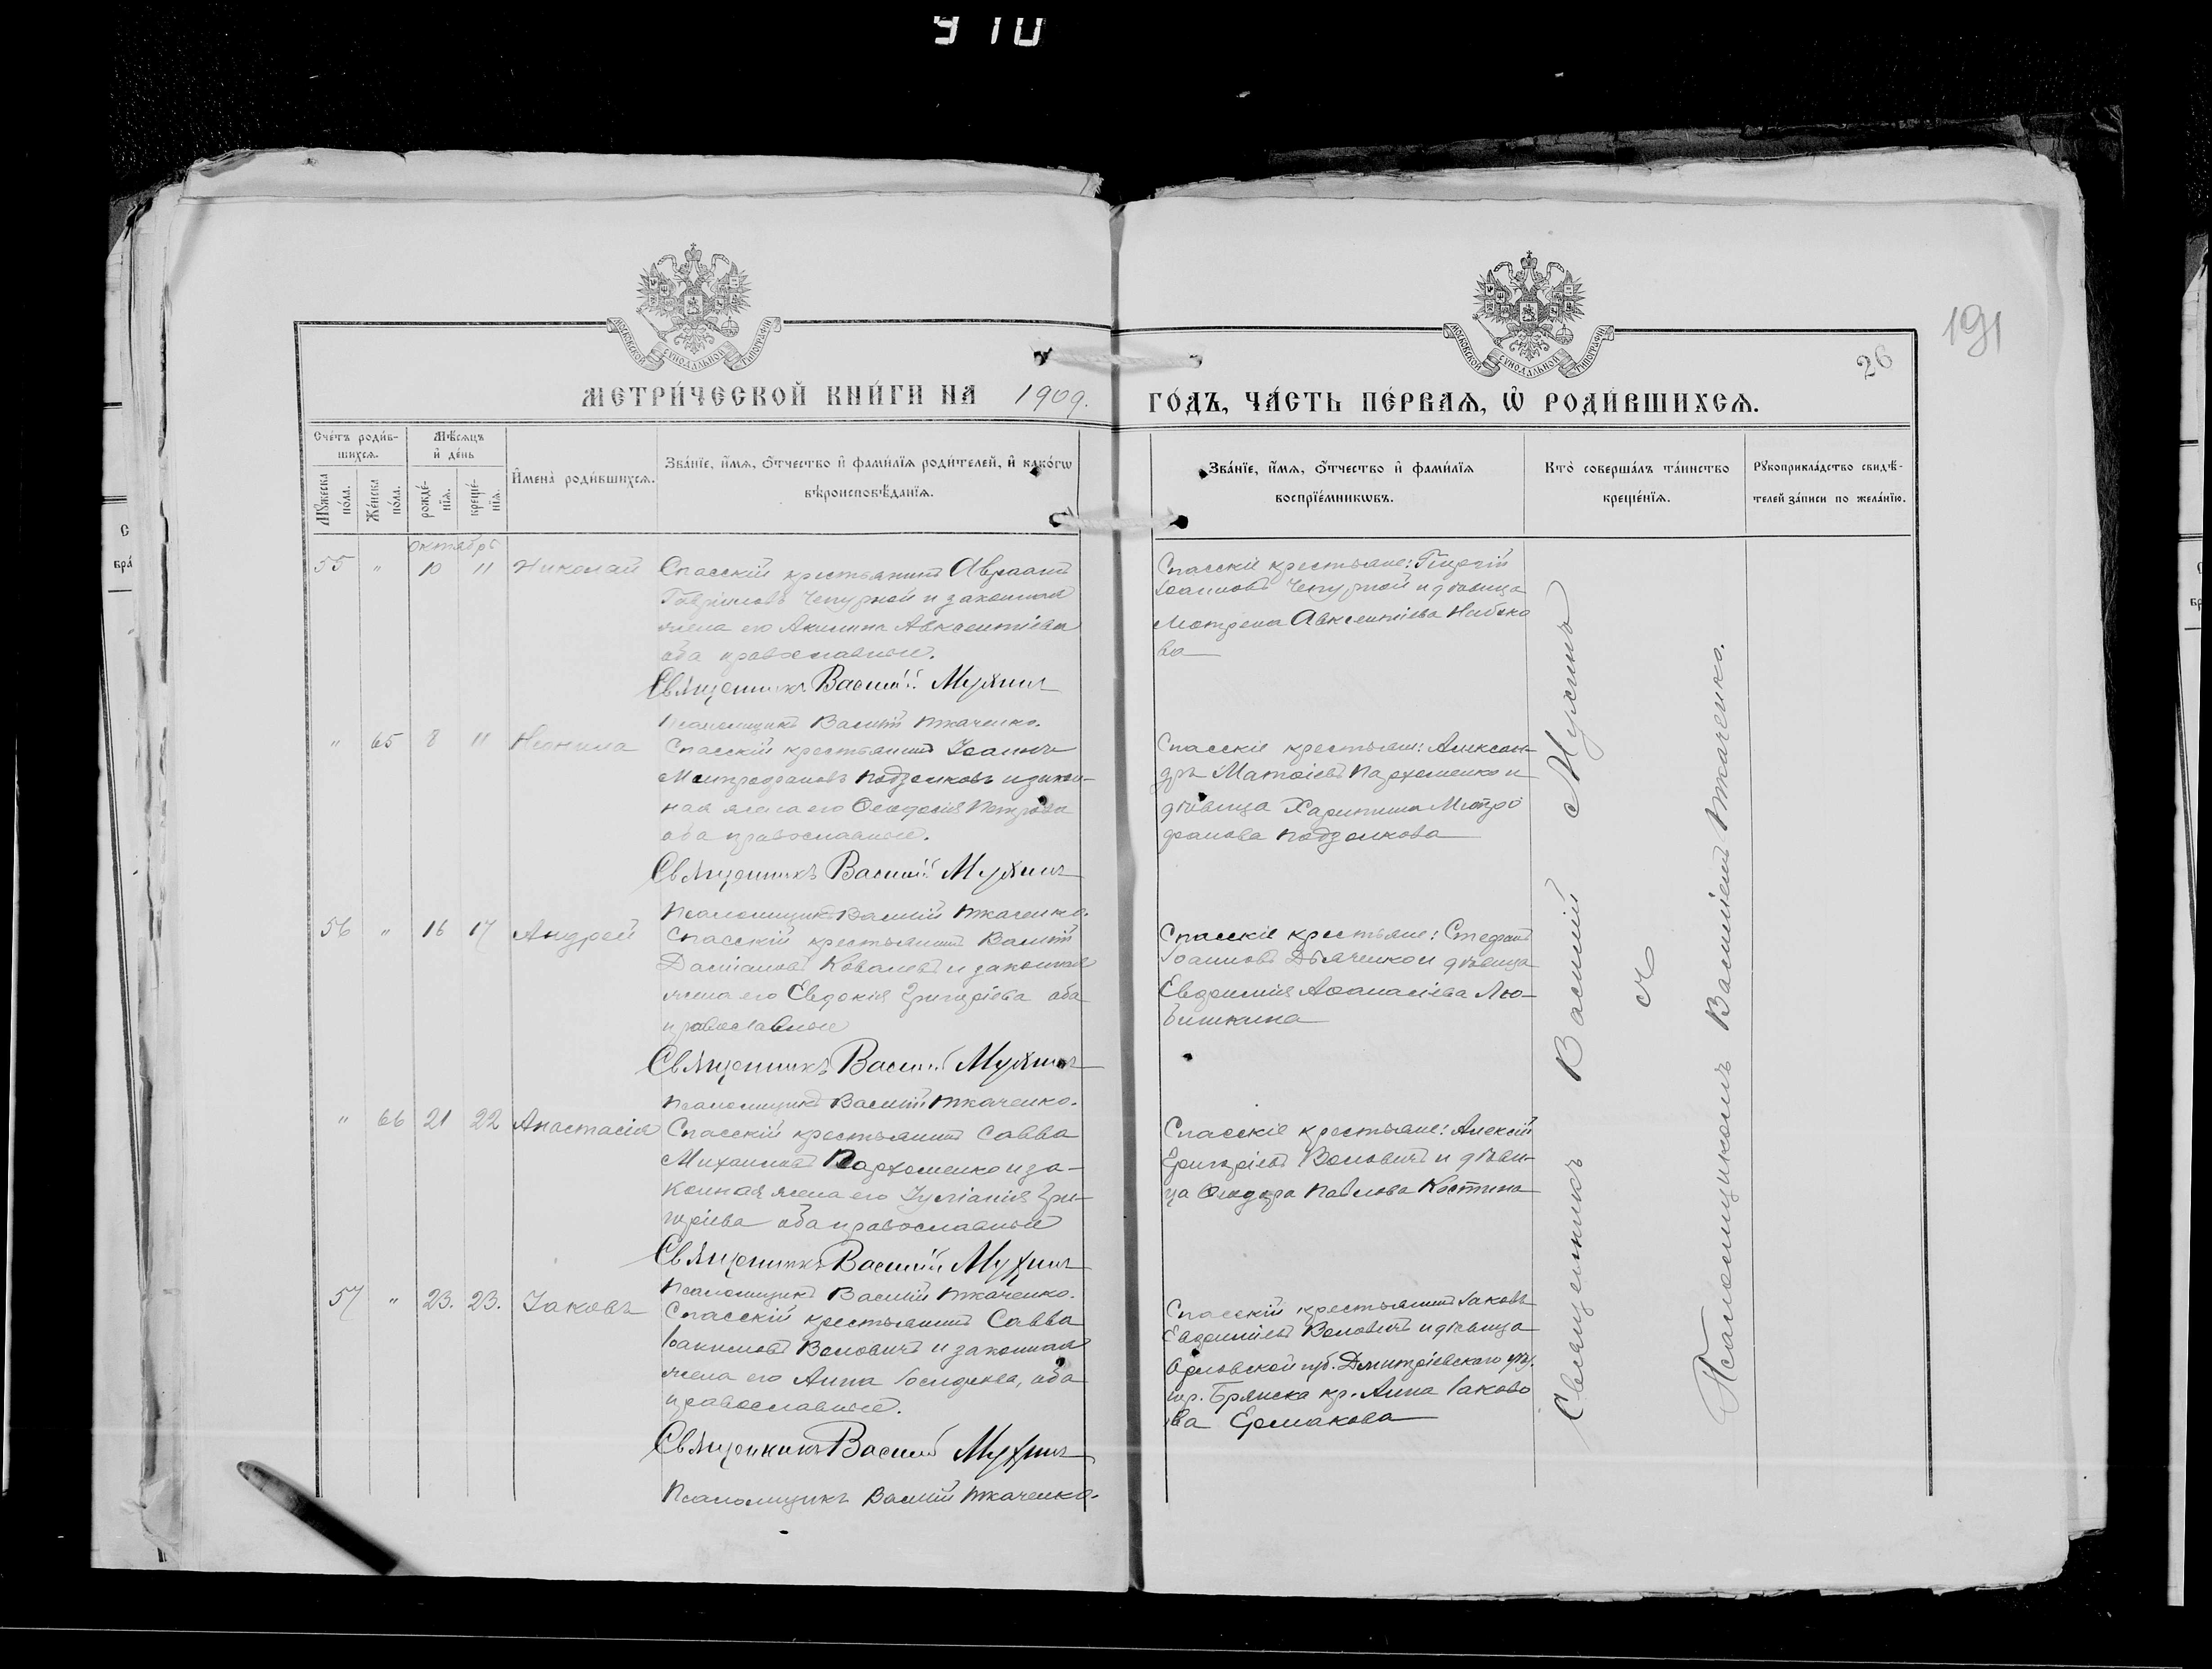 910
191
26
МОСКОВСКОЙ СѴНОДАЛЬНОЙ ТИПОГРАФІИ
МОСКОВСКОЙ СѴНОДАЛЬНОЙ ТИПОГРАФІИ
МЕТРИ́ЧЕСКОЙ КНИ́ГИ НА 1909. ГО́ДЪ, ЧА́СТЬ ПЕ́РВАѦ, Ѡ҆ РОДИ́ВШИХСѦ.
Сче́тъ роди́в-
шихсѧ.
Мꙋ́жеска по́ла.
Же́нска по́ла.
Мѣ́сѧцъ
и҆ де́нь
рожде́-нїѧ.
креще́-нїѧ.
И҆мена̀ роди́вшихсѧ.
Зва́нїе, и҆́мѧ, ѻ҆́тчество и҆ фами́лїѧ роди́телей, и҆ како́гѡ
вѣроисповѣ́данїѧ.
Зва́нїе, и҆́мѧ, ѻ҆́тчество и҆ фами́лїѧ
воспрїе́мникѡвъ.
Кто̀ соверша́лъ та́инство
креще́нїѧ.
Рꙋкоприкла́дство свидѣ́-
телей за́писи по жела́нїю.
октябрь
55 " 10 11 Николай
Спасскій крестьянинъ Авраамъ
Гавріиловъ Чепурной и законная
жена его Акилина Авксентіева
оба православные.
Священникъ Василій Мухинъ
Псаломщикъ Василій Ткаченко.
Спасскіе крестьяне: Георгій
Іоанновъ Чепурной и дѣвица
Мотрона Авксентіева Набоко
ва
" 65 8 11 Неонила
Спасскій крестьянинъ Іоаннъ
Митрофановъ Подзолковъ и закон-
ная жена его Ѳеодосія Петрова
оба православные.
Священникъ Василій Мухинъ
Псаломщикъ Василій Ткаченко.
Спасскіе крестьяне: Алексан-
дръ Матѳіевъ Пархоменко и
дѣвица Харитина Митро
фанова Подзолкова
56 " 16 17 Андрей
Спасскій крестьянинъ Василій
Даміановъ Ковалевъ и законная
жена его Евдокія Григоріева оба
православные
Священникъ Василій Мухинъ
Псаломщикъ Василій Ткаченко.
Спасскіе крестьяне: Стефанъ
Іоанновъ Дьяченко и дѣвица
Евфимія Аѳанасіева Лю-
бишкина
" 66 21 22 Анастасія
Спасскій крестьянинъ Савва
Михаиловъ Пархоменко и за-
конная жена его Іуліанія Гри-
горіева оба православные
Священникъ Василій Мухинъ
Псаломщикъ Василій Ткаченко.
Спасскіе крестьяне: Алексій
Григоріевъ Воловичъ и дѣви-
ца Ѳеодора Павлова Костина
57 " 23. 23. Іаковъ
Спасскій крестьянинъ Савва
Іоакимовъ Воловичъ и законная
жена его Анна оба
православные.
Священникъ Василій Мухинъ
Псаломщикъ Василій Ткаченко.
Спасскій крестьянинъ Іаковъ
Евфиміевъ Воловичъ и дѣвица
Орловской губ. Дмитріевскаго уѣз.
гор. Брянска кр. Анна Іаково
ва Ермакова
Священникъ Василій Мухинъ
съ
Псаломщикомъ Василіемъ Ткаченко.